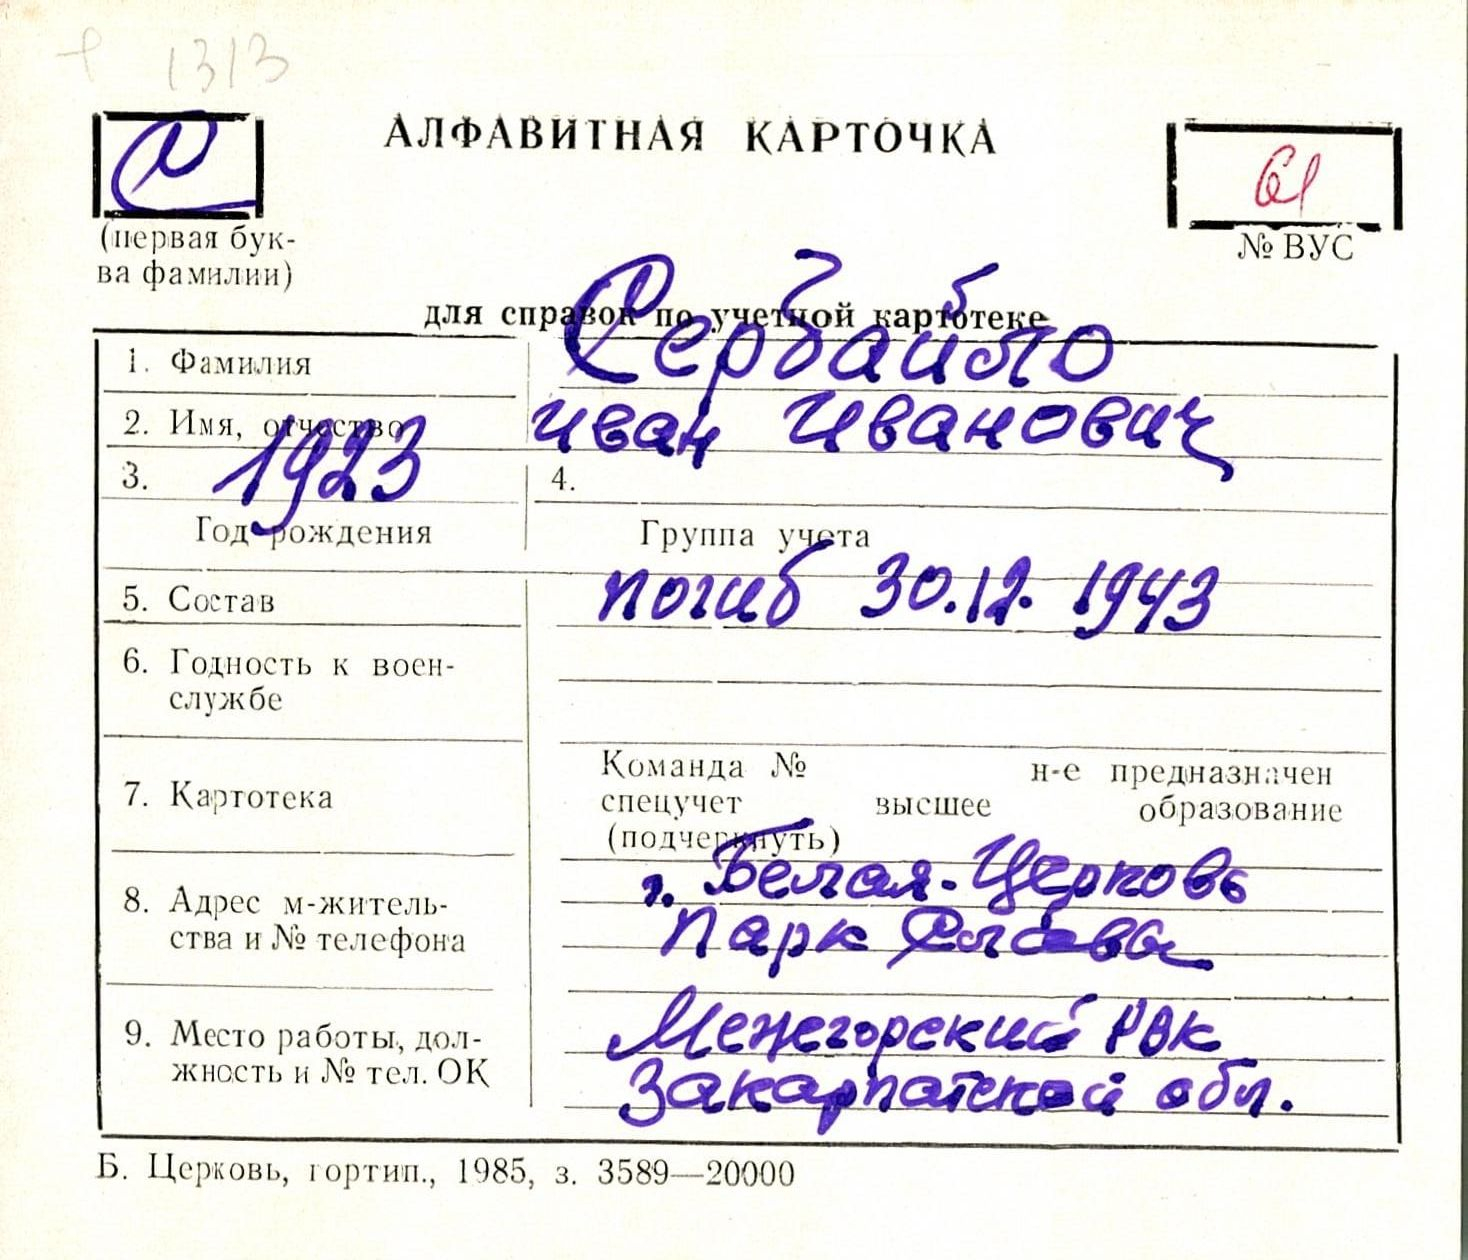 1313
С
АЛФАВИТНАЯ КАРТОЧКА
61
(первая бук-
ва фамилии)
№ ВУС
для справок по учетной картотеке
1. Фамилия
2. Имя, отчество Иван Иванович
3. 1923 4.
Год рождения Группа учета
5. Состав погиб 30.12.1943
6. Годность к воен-
службе
7. Картотека
Команда № н-е предназначен
спецучет высшее образование
(подчеркнуть)
8. Адрес м-житель-
ства и № телефона
г. Белая-Церковь
Парк Славы
9. Место работы, дол-
жность и № тел. ОК
Межегорский РВК
Закарпатской обл.
Б. Церковь, гортип., 1985, з. 3589—20000